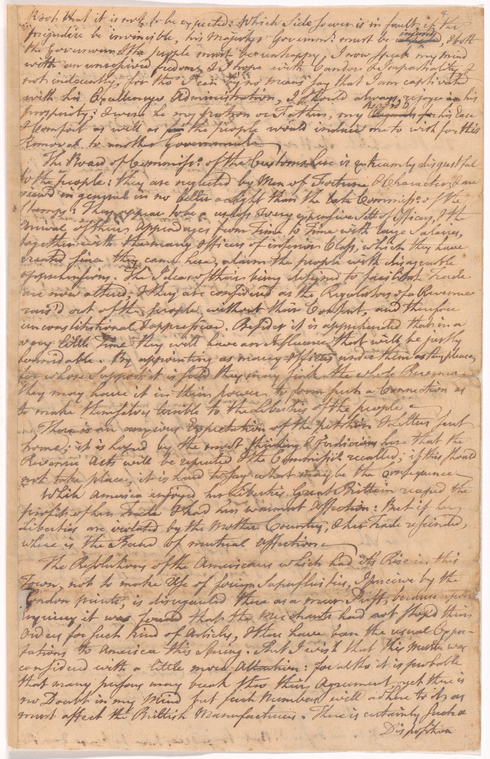 Root that it is not to be expected: Which Side soever is in fault, if the
prejudice be invincible, his Majestys Government must be injured, & both
the Governour & the people must be unhappy. I now speak my mind
with an unreserved freedom, I hope with Candor & Impartiality
not indecently, for tho I can by no means say that I am captivated
with his Excellencys Administration, I should always rejoyce in his
prosperity: & were he my Patron or Father, my Regards for his Ease
& Comfort as well as for the people would induce me to wish for his
Removal to another Government
The Board of Commissrs. of the Customs here is extreamly disgustful
to the people: they are neglected by Men of Fortune & Character, & are
viewd in general in no better a Light than the late Commissrs. of the
Stamps. They appear to be a useless & very expensive Sett of Officers, & the
arrival of their Appendages from Time to Time with large Salarys,
together with the many officers of inferior Class, which they have
created since they came here, alarm the people with disagreable
apprehensions. The Idea of their being designd to facilitate Trade
are now altered. They are considered as the Regulators of a Revenue
raisd out of the people without their Consent, and therefore
unconstitutional & oppressive. Besides it is apprehended that in a
very little Time they will have an Influence that will be justly
formidable. By appointing as many officers under them as they please,
for whose Support it is said they may sink the whole Revenue
they may have it in their power, to form such a Connection as
to make themselves terrible to the Liberties of the people
There is an anxious Expectation of the petitions & Letters sent
home; it is hoped by the most thinking & Judicious here that the
Revenue Acts will be repealed & the Commissrs recalled; if this should
not take place, it is hard to say what may be the consequence
While America enjoyed her Liberties Great Brittain reaped the
profits of her Trade & had her warmest Affection: But if her
Liberties are violated by the Mother Country, & her trade
where is the Fund of mutual Affection
The Resolutions of the Americans which had its Rise in this
Town, not to make Use of foreign Superfluities, I perceive by the
London prints, is disregarded there as a mere Puff, because upon
inquiry it was found that the Merchants had not stopd their
Orders for such kind of Articles, & there have been the usual Expor
tations to America this Spring. But I wish that this matter was
considered with a little more Attention: for altho it is probable
that many persons may break thro their Agreement, yet there is
no Doubt in my Mind but such Numbers will adhere to it, as
must affect the British Manufacturers. There is certainly such a
Disposition